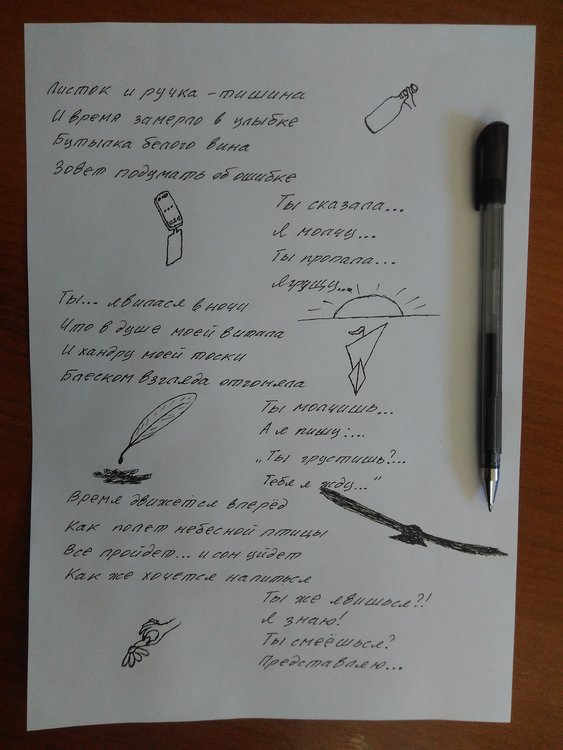 Листок и ручка - тишина
И время замерло в улыбке
Бутылка белого вина
Зовет подумать об ошибке
Ты сказала...
Я молчу...
Ты пропала...
Я грущу...
Ты... явилася в ночи
Что в душе моей витала
И хандру моей тоски
Блеском взгляда отгоняла
Ты молчишь...
А я пишу:...
„Ты грустишь?...
Тебя я жду..."
Время движется вперёд
Как полет небесной птицы
Все пройдет... и сон уйдет
Как же хочется напиться
Ты же явишься?!
Я знаю!
Ты смеёшься?
Представляю...